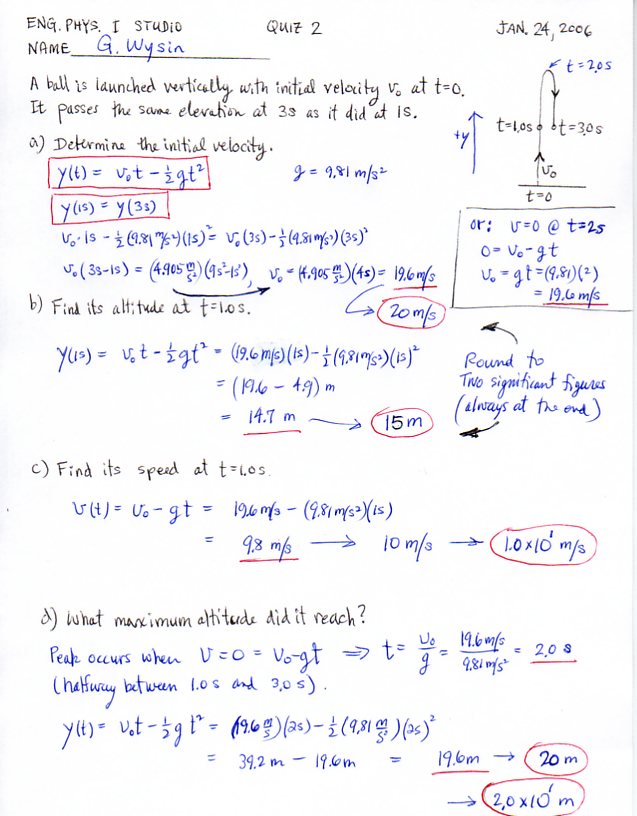 ENG. PHYS. I STUDIO QUIZ 2 JAN. 24, 2006
NAME G. Wysin
A ball is launched vertically with initial velocity v₀ at t=0.
It passes the same elevation at 3s as it did at 1s.
t=2.0s
t=1.0s t=3.0s
+y
v₀
t=0
a) Determine the initial velocity.
y(t) = v₀t - ½gt² g = 9.81 m/s²
y(1s) = y(3s)
v₀·1s - ½(9.81 m/s²)(1s)² = v₀(3s) - ½(9.81 m/s²)(3s)²
v₀(3s-1s) = (4.905 m/s²)(9s²-1s²), v₀ = (4.905 m/s²)(4s) = 19.6 m/s
20 m/s
or: v=0 @ t=2s
0 = v₀ - gt
v₀ = gt = (9.81)(2)
= 19.6 m/s
b) Find its altitude at t=1.0s.
y(1s) = v₀t - ½gt² = (19.6 m/s)(1s) - ½(9.81 m/s²)(1s)²
= (19.6 - 4.9) m
= 14.7 m → 15 m
Round to
Two significant figures
(always at the end)
c) Find its speed at t=1.0s.
v(t) = v₀ - gt = 19.6 m/s - (9.81 m/s²)(1s)
= 9.8 m/s → 10 m/s → 1.0×10¹ m/s
d) What maximum altitude did it reach?
Peak occurs when v=0 = v₀-gt ⇒ t = v₀/g = 19.6 m/s / 9.81 m/s² = 2.0 s
(halfway between 1.0s and 3.0s).
y(t) = v₀t - ½gt² = (19.6 m/s)(2s) - ½(9.81 m/s²)(2s)²
= 39.2 m - 19.6m = 19.6m → 20 m
→ 2.0×10¹ m